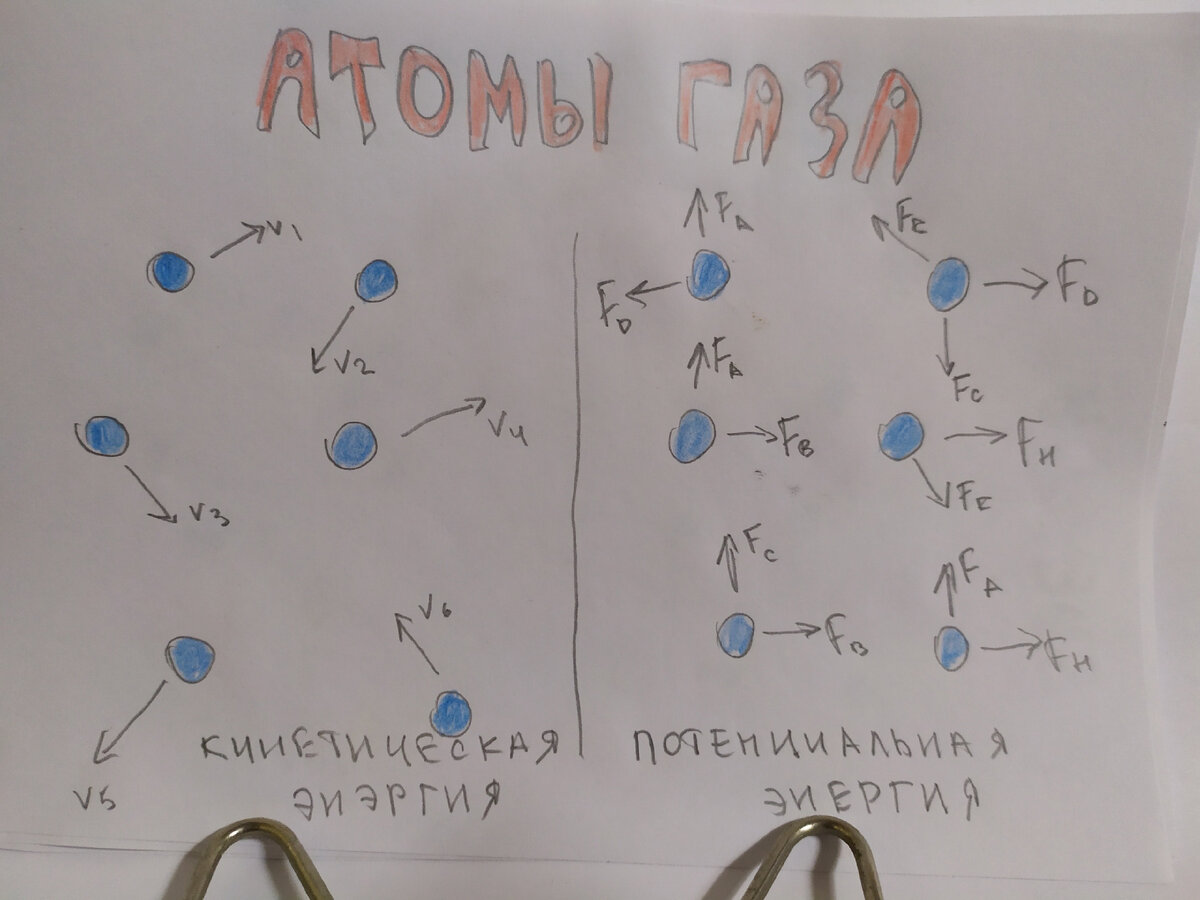 АТОМЫ ГАЗА
V1
V2
V3
V4
V5
V6
КИНЕТИЧЕСКАЯ
ЭНЭРГИЯ
FA
FD
FE
FD
FC
FA
FB
FH
FE
FC
FB
FA
FH
ПОТЕНЦИАЛЬНАЯ
ЭНЕРГИЯ